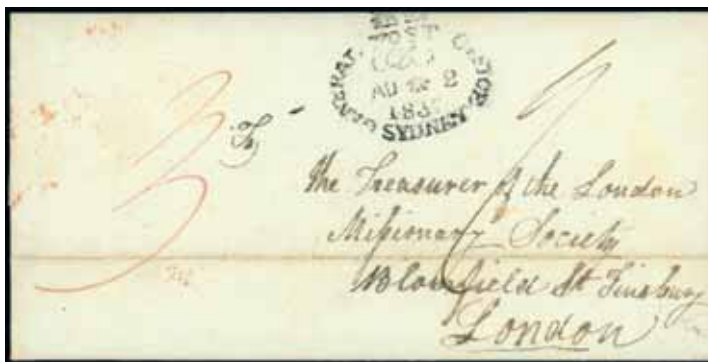 GENERAL POST OFFICE
AU 2
183
SYDNEY
3
To
The Treasurer of the London
Missionary Society
Blomfield St Finsbury
London